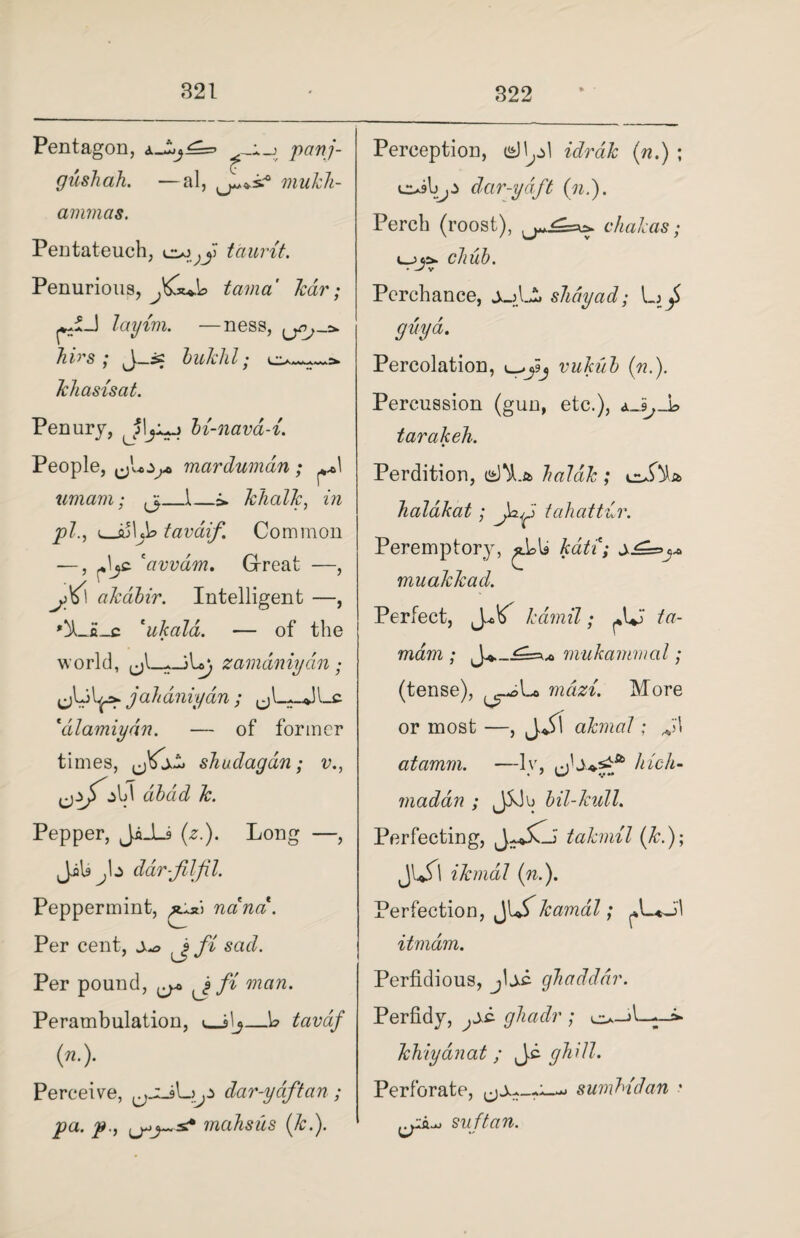 321
Pentagon, پنج گوشه panj-
gúshah. —al, مخمس mukh-
ammas.
Pentateuch, توریت taurít.
Penurious, طمعکار tama' kár;
لئیم layím. —ness, حرص
hirs; بخل bukhl; خسیست
khasísat.
Penury, بینوائی bí-navá-í.
People, مردمان mardumán; امم
umam; خلق khalk, in
pl., طوائف taváif. Common
—, عوام 'avvám. Great —,
اکابر akábir. Intelligent —,
عقلاء 'ukalá. — of the
world, زمانیان zamániyán;
جهانیان jahániyán; عالمیان
'álamiyán. — of former
times, شدگان shudagán; v.,
آباد کردن ábád k.
Pepper, فلفل (z.). Long —,
دار فلفل dár-filfil.
Peppermint, نعنع na'na'.
Per cent, فی صد fí sad.
Per pound, فی من fí man.
Perambulation, طواف taváf
(n.).
Perceive, دریافتن dar-yáftan;
pa. p., محسوس mahsús (k.).
322
Perception, ادراک idrák (n.);
دریافت dar-yáft (n.).
Perch (roost), چکس chakas;
چوب chúb.
Perchance, شاید sháyad; گویا
gúyá.
Percolation, وقوب vukúb (n.).
Percussion (gun, etc.), طرقه
tarakeh.
Perdition, هلاک halák; هلاکت
halákat; tahattúr.
Peremptory, قاطع káti'; موکد
muakkad.
Perfect, کامل kámil; تمام ta-
mám; مکمل mukammal;
(tense), ماضی mází. More
or most —, اکمل akmal; اتم
atamm. —ly, همچدان hích-
maddán; بالکل bil-kull.
Perfecting, تکمیل takmíl (k.);
اکمال ikmál (n.).
Perfection, کمال kamál; اتمام
itmám.
Perfidious, غدار ghaddár.
Perfidy, غدر ghadr; خیانت
khiyánat; غل ghill.
Perforate, سنبیدن sumbídan;
سفتن suftan.